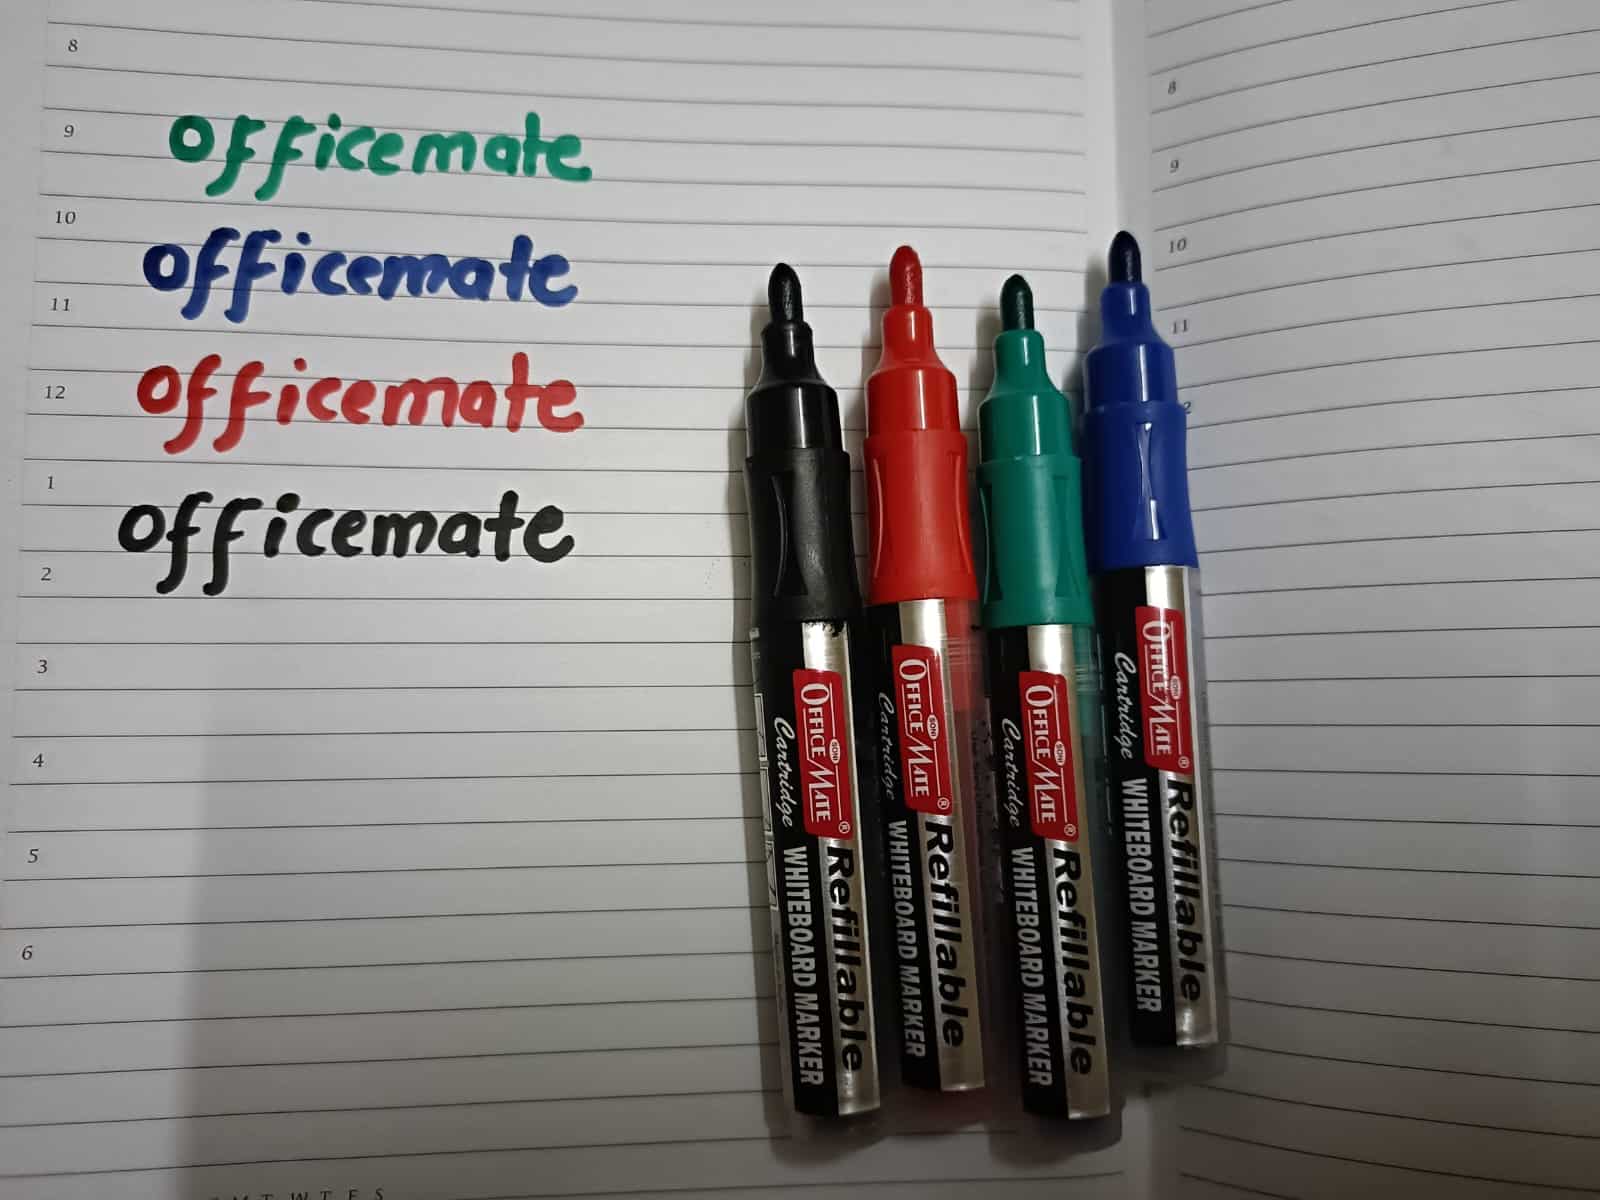 8
9
10
11
12
1
2
3
4
5
6
officemate
officemate
officemate
officemate
8
9
10
11
2
SONI
OFFICEMATE®
Cartridge
Refillable
WHITEBOARD MARKER
SONI
OFFICEMATE®
Cartridge
Refillable
WHITEBOARD MARKER
SONI
OFFICEMATE®
Cartridge
Refillable
WHITEBOARD MARKER
SONI
OFFICEMATE®
Cartridge
Refillable
WHITEBOARD MARKER
M T W T F S